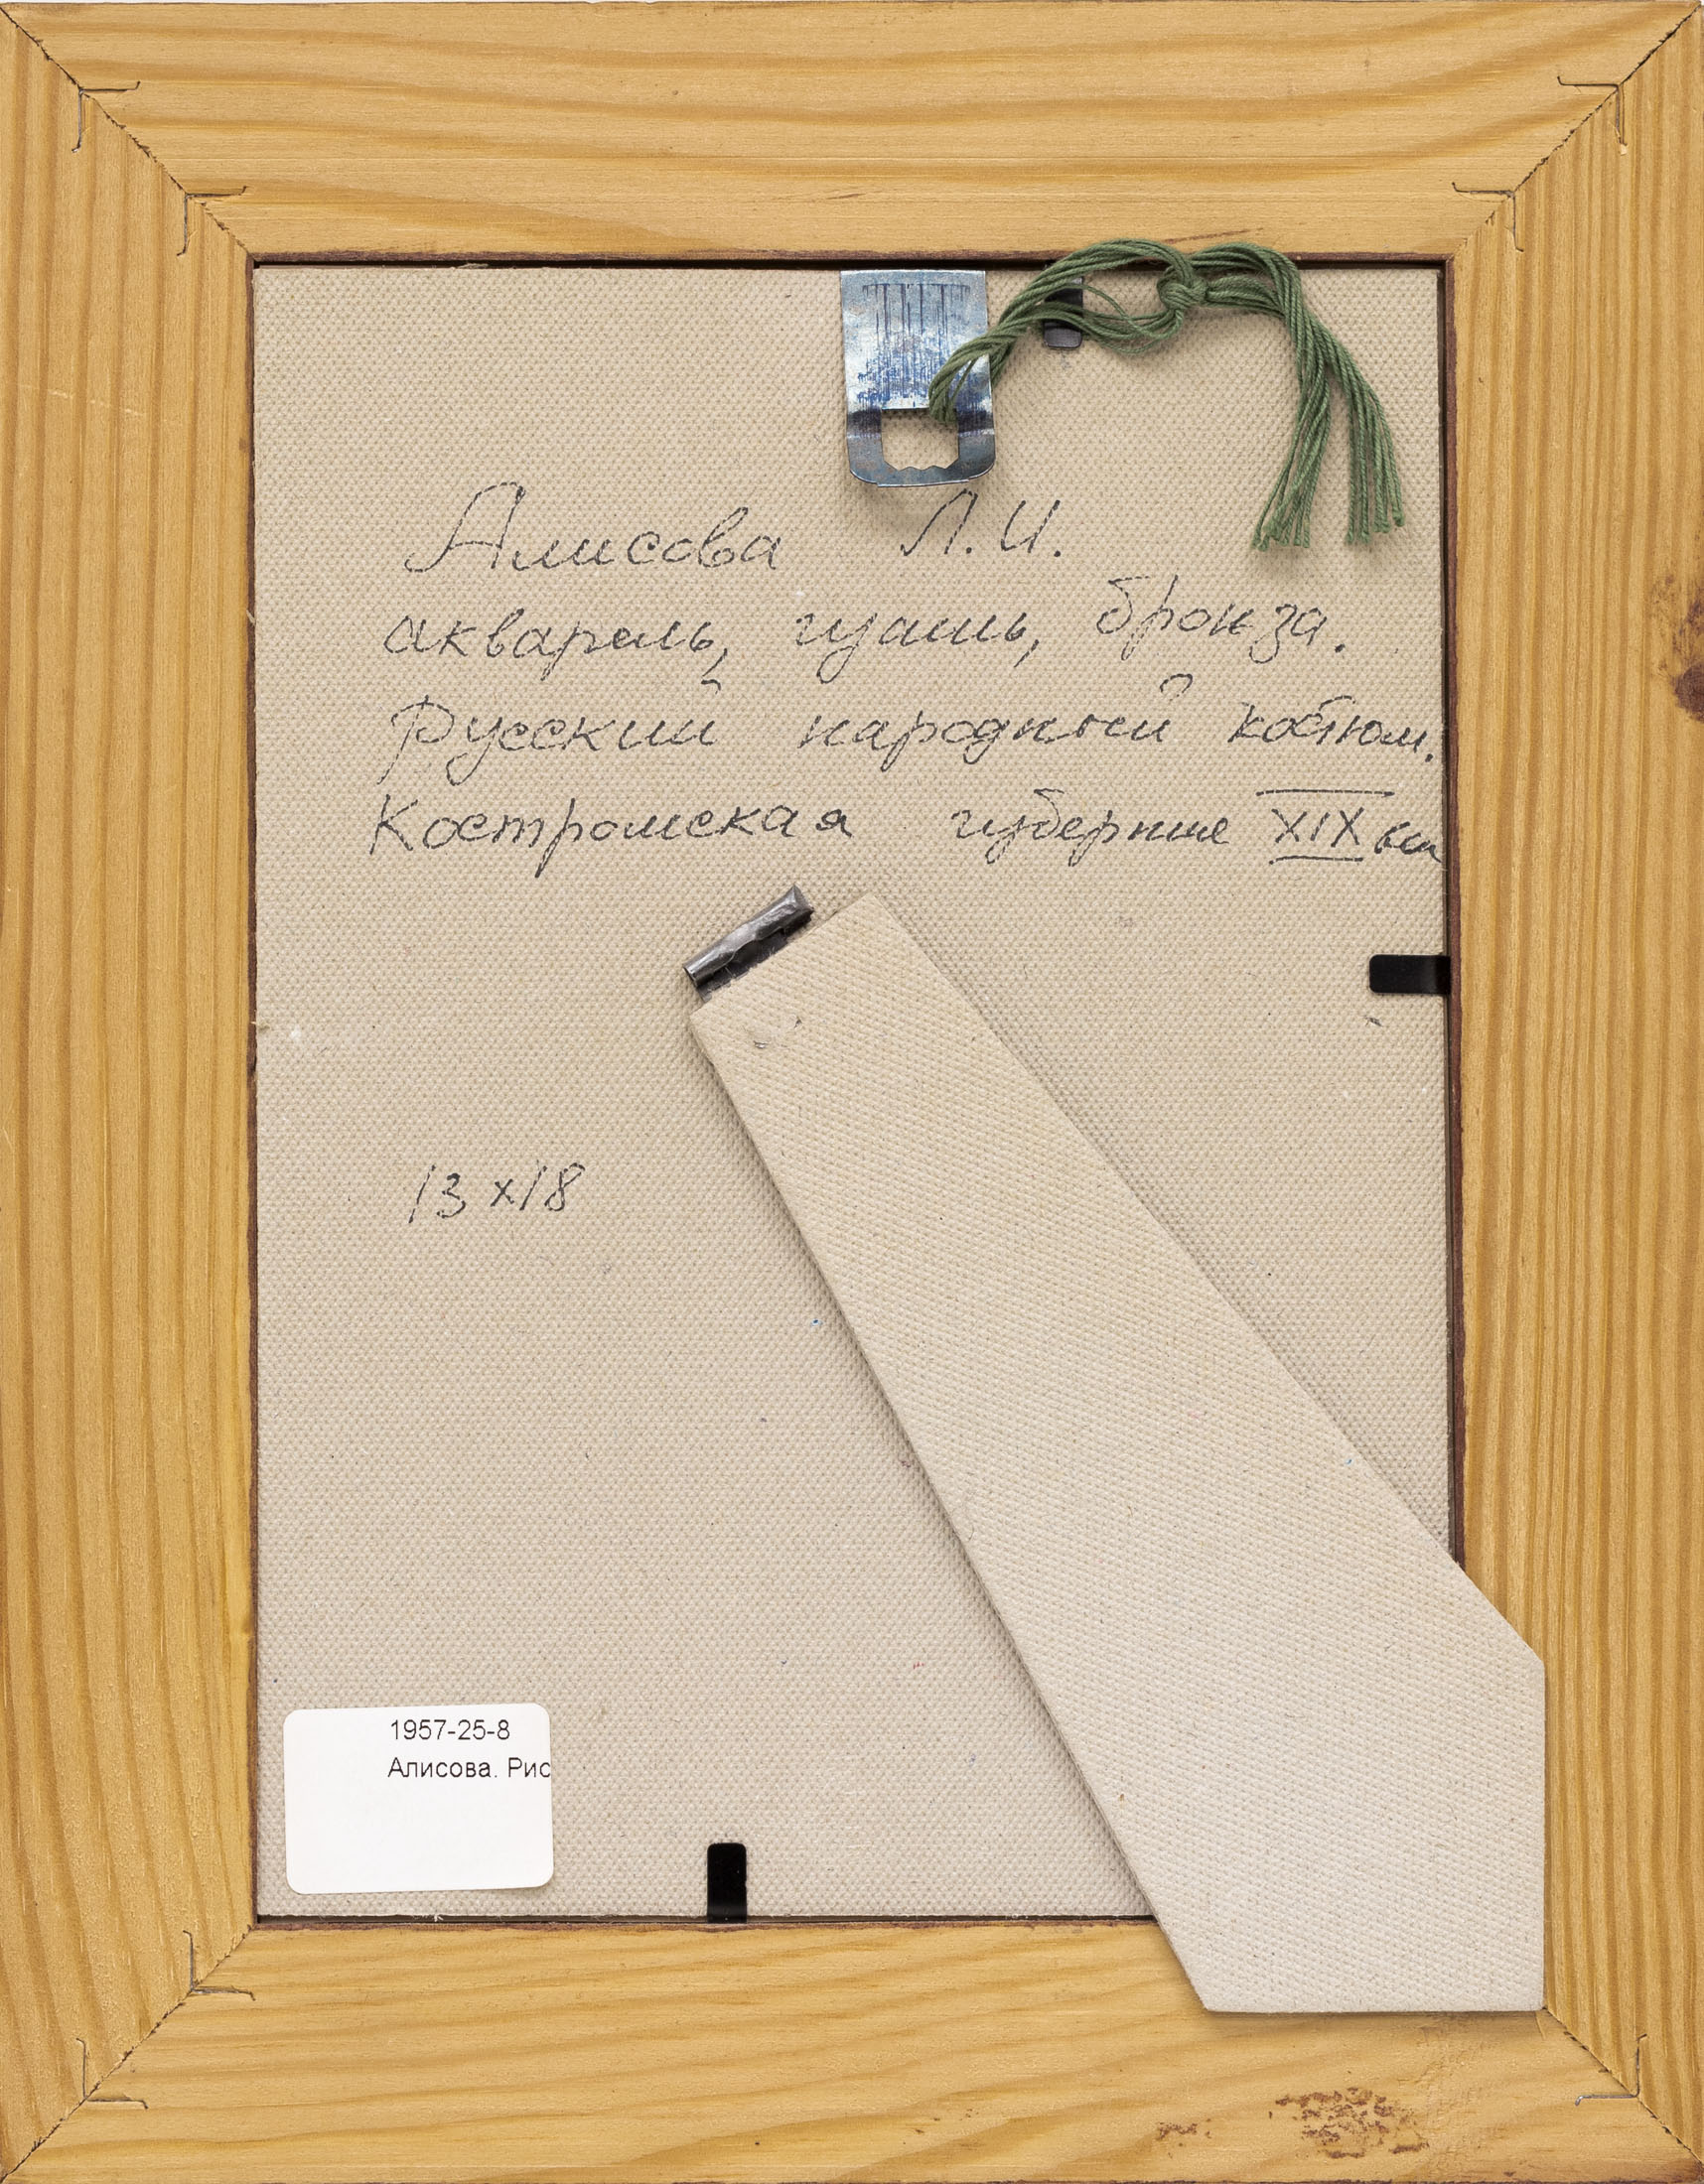 Алисова Л.И.
акварель, гуашь, бронза.
Русский народный костюм.
Костромская губерния XIX век
13 x 18
1957-25-8
Алисова. Рис